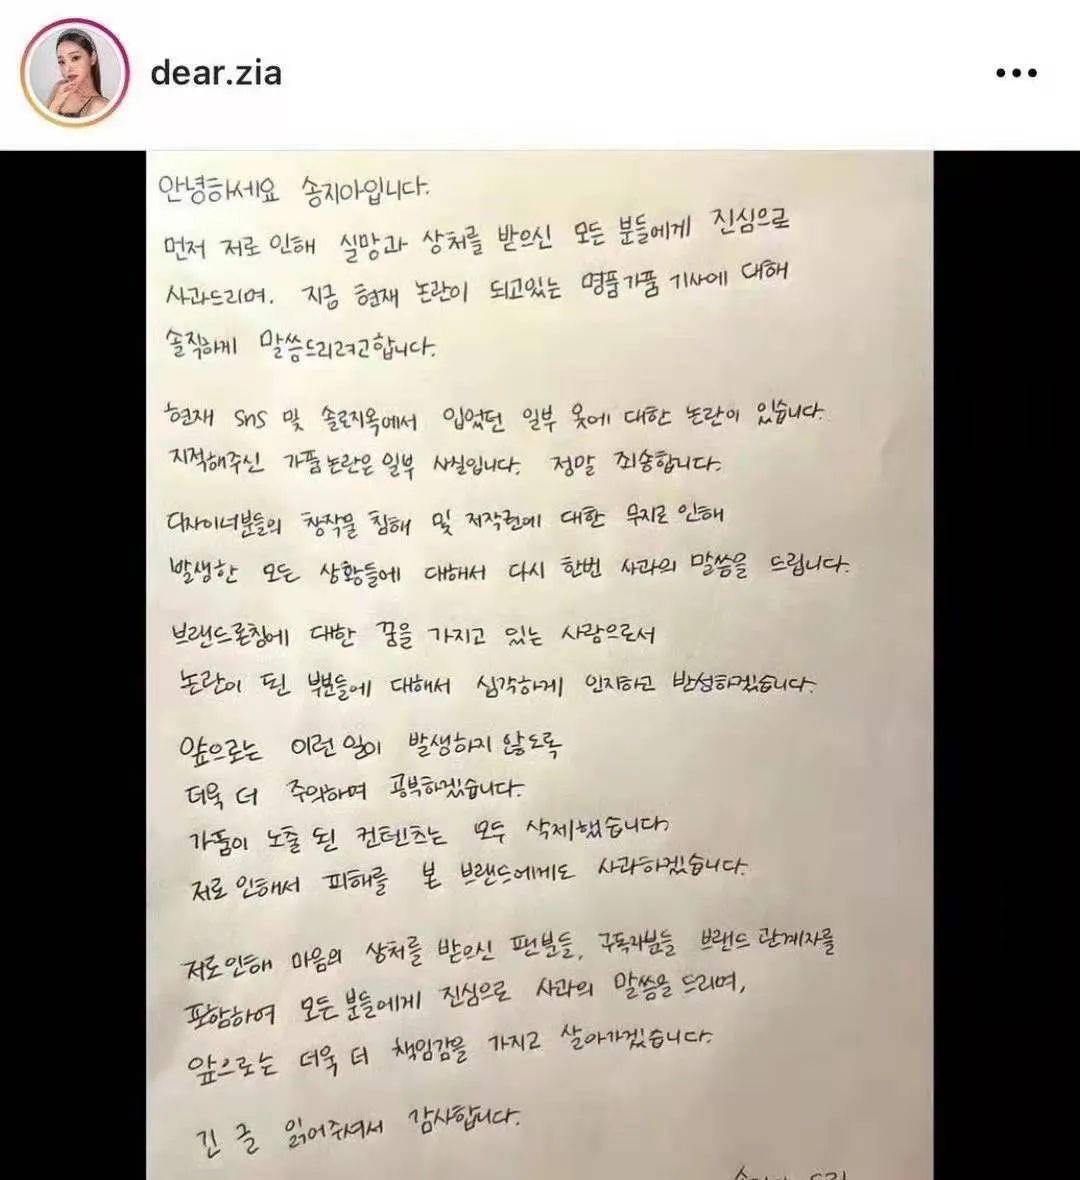 dear.zia
안녕하세요 송지아입니다.
먼저 저로 인해 실망과 상처를 받으신 모든 분들에게 진심으로
사과드리며, 지금 현재 논란이 되고있는 명품가품 기사에 대해
솔직하게 말씀드리려고합니다.
현재 sns 및 솔로지옥에서 입었던 일부 옷에 대한 논란이 있습니다.
지적해주신 가품논란은 일부 사실입니다. 정말 죄송합니다.
디자이너분들의 창작물 침해 및 저작권에 대한 무지로 인해
발생한 모든 상황들에 대해서 다시 한번 사과의 말씀을 드립니다.
브랜드론칭에 대한 꿈을 가지고 있는 사람으로서
논란이 된 부분들에 대해서 심각하게 인지하고 반성하겠습니다.
앞으로는 이런 일이 발생하지 않도록
더욱 더 주의하며 공부하겠습니다.
가품이 노출 된 컨텐츠는 모두 삭제했습니다.
저로 인해서 피해를 본 브랜드에게도 사과하겠습니다.
저로인해 마음의 상처를 받으신 팬분들, 구독자분들 브랜드 관계자를
포함하여 모든 분들에게 진심으로 사과의 말씀을 드리며,
앞으로는 더욱 더 책임감을 가지고 살아가겠습니다.
긴 글 읽어주셔서 감사합니다.